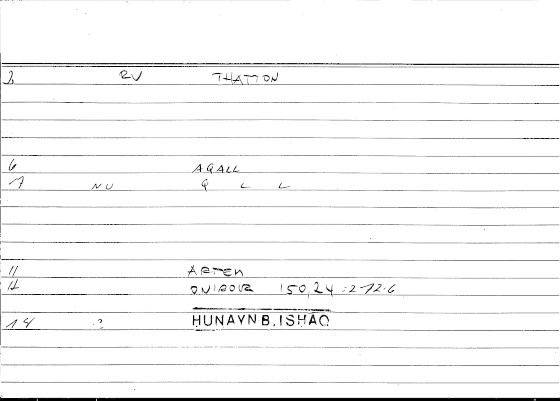 2 RV THATTON
6 AQALL
7 NU Q L L
11 ARTEM
12 150,24 :2-72.6
14 ? HUNAYN B. ISHAQ